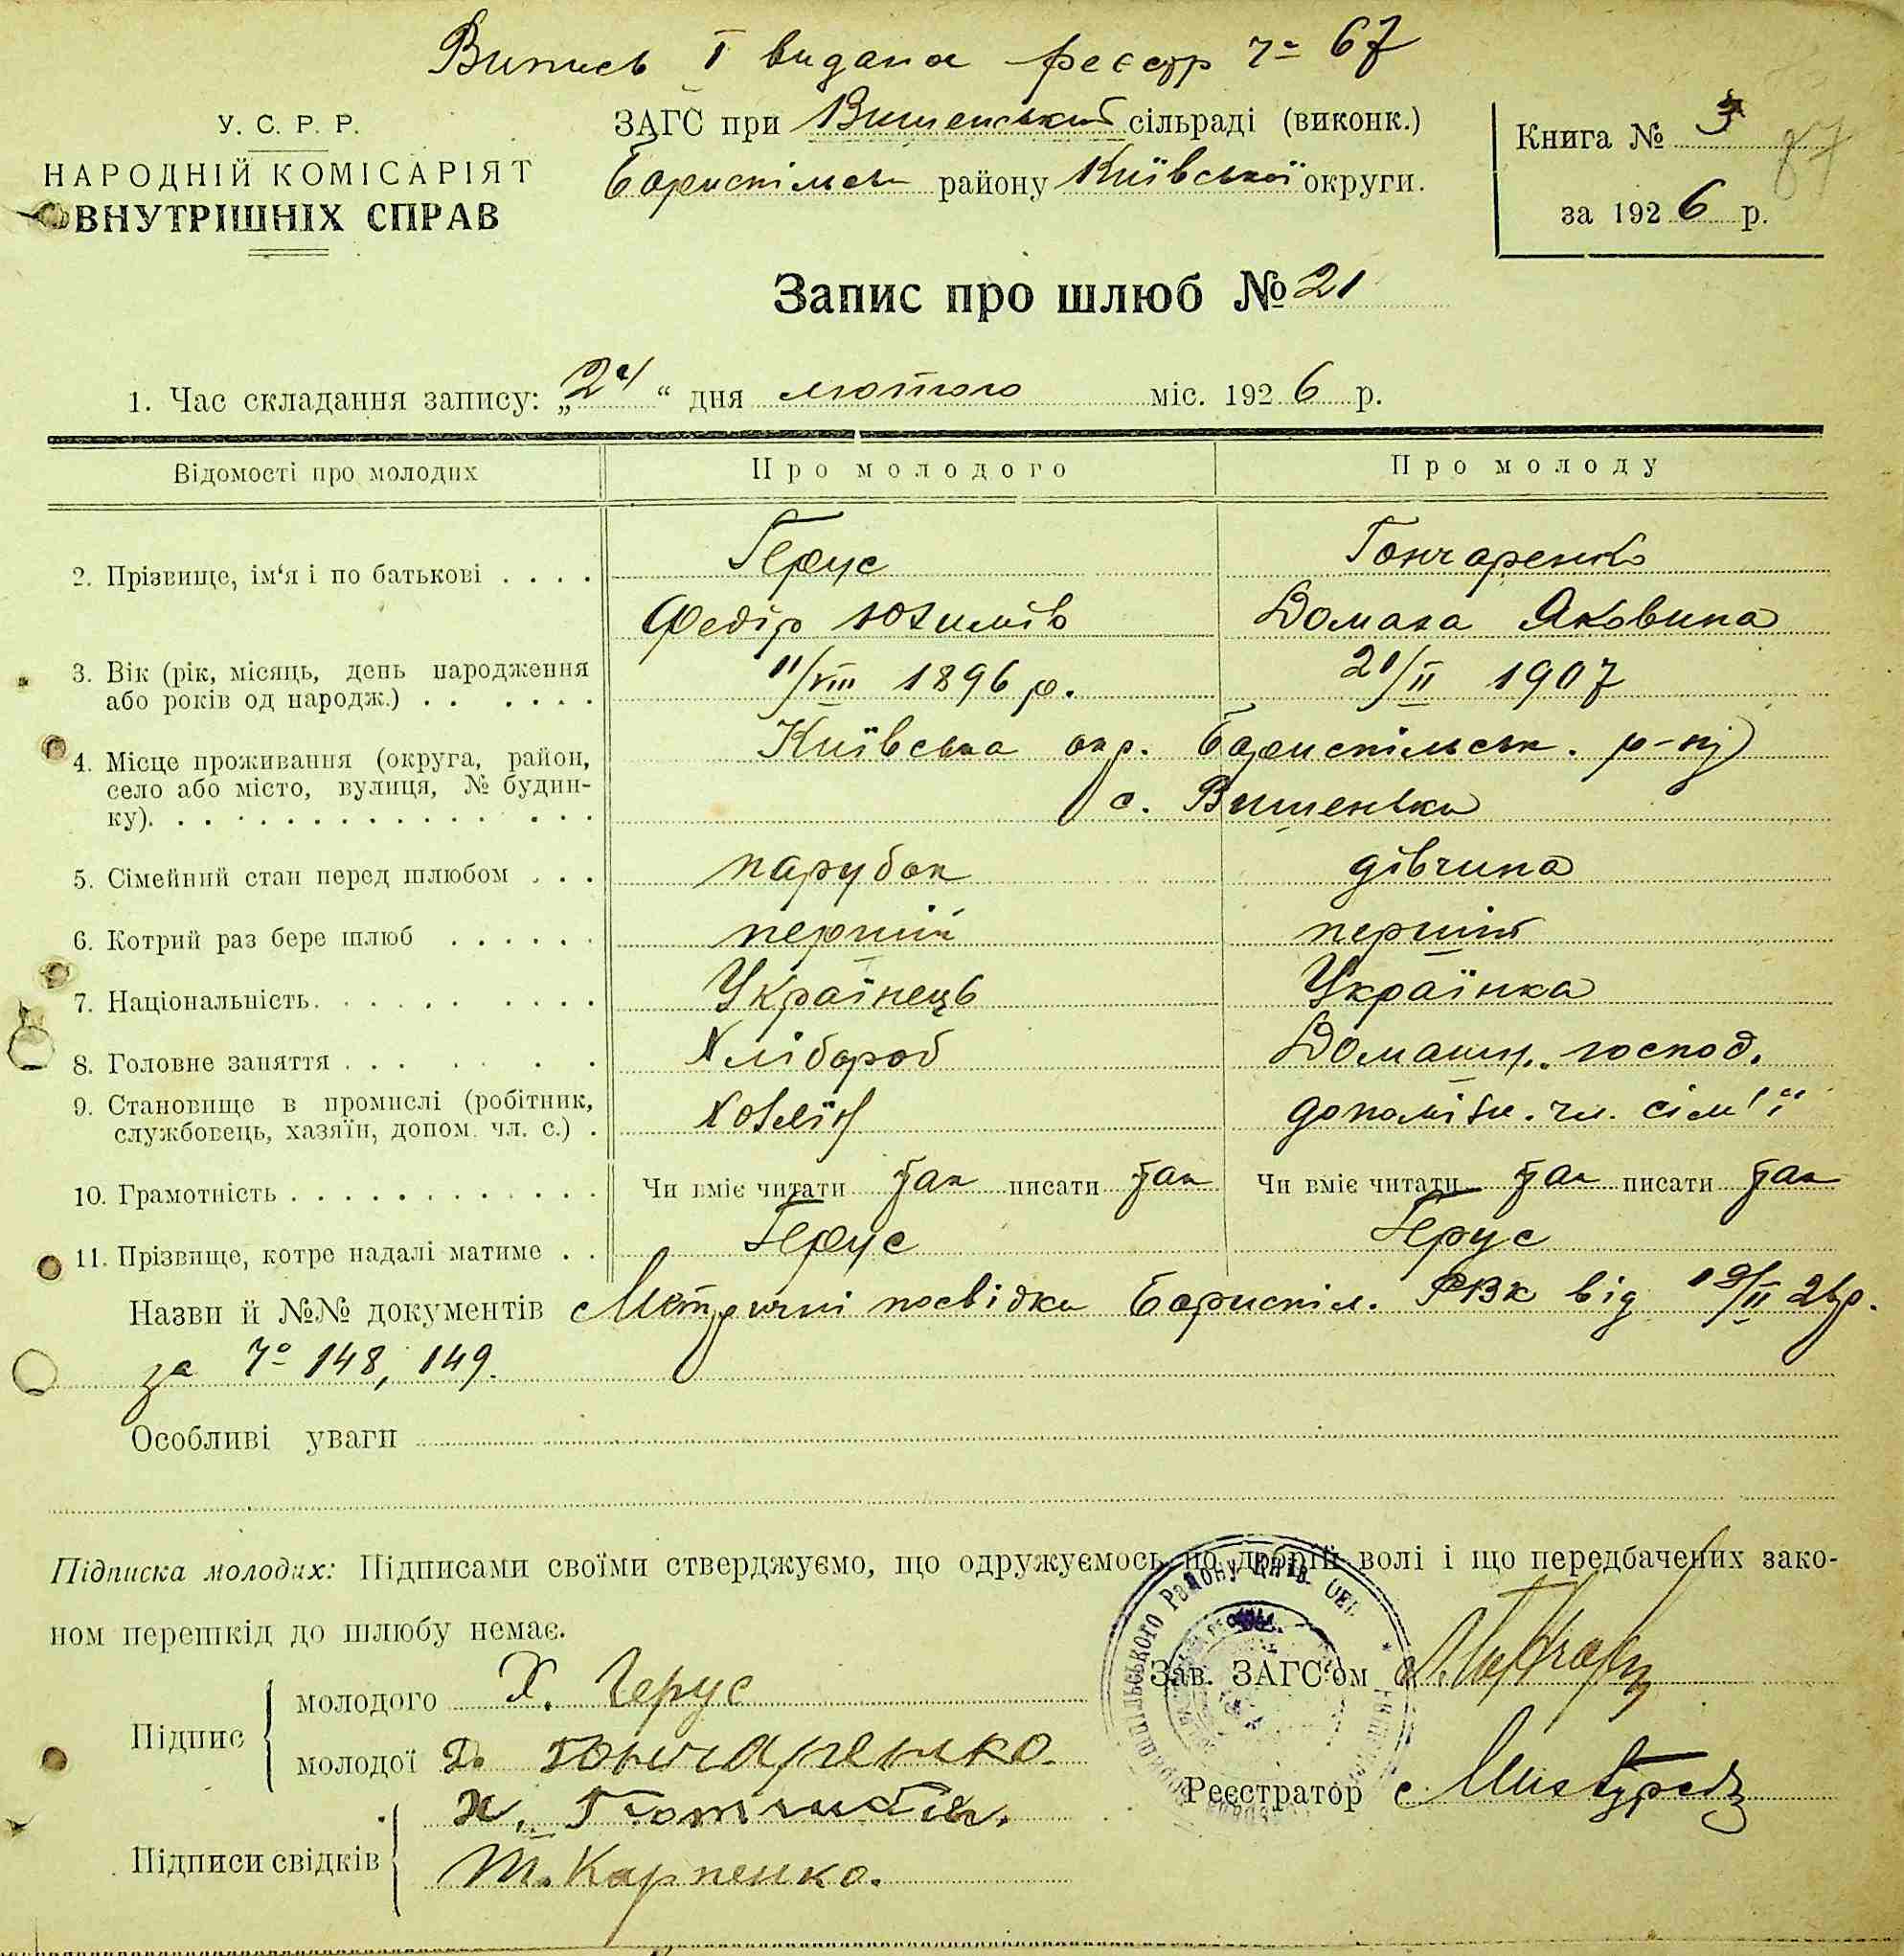 Випись І видана реєстр ч= 67
У. С. Р. Р.
НАРОДНІЙ КОМІСАРІЯТ
ВНУТРІШНІХ СПРАВ
ЗАГС при Вишенський сільраді (виконк.)
Бориспільськ району Київської округи.
Книга № 3
87
за 1926 р.
Запис про шлюб № 21
1. Час складання запису: „24“ дня лютого міс. 1926 р.
Відомості про молодих
Про молодого
Про молоду
2. Прізвище, ім‘я і по батькові . . . .
Герус
Гончаренко
Федір Юхимів
Домаха Яковина
3. Вік (рік, місяць, день народження або років од народж.) . . . . . .
11/VIII 1896 р.
21/II 1907
4. Місце проживання (округа, район, село або місто, вулиця, № будинку).
Київська окр. Бориспільськ. р-ну
с. Вишеньки
5. Сімейний стан перед шлюбом . . .
парубок
дівчина
6. Котрий раз бере шлюб . . . . . .
перший
перший
7. Національність. . . . . . . . .
Українець
Українка
8. Головне заняття . . . . . .
Хлібороб
Домашн. господ.
9. Становище в промислі (робітник, службовець, хазяїн, допом. чл. с.) .
Хозяїн
допоміжн. чл. сім'ї
10. Грамотність . . . . . . . . . . . .
Чи вміє читати так писати так
Чи вміє читати так писати так
11. Прізвище, котре надалі матиме . .
Герус
Герус
Назви й №№ документів Метричні посвідки Бориспіл. РВК від 19/II 26р.
за ч= 148, 149.
Особливі уваги
Підписка молодих: Підписами своїми стверджуємо, що одружуємось по добрій волі і що передбачених зако-
ном перешкід до шлюбу немає.
Підпис
молодого Х. Герус
молодої Д. Гончаренко.
Зав. ЗАГС'ом
Реєстратор
Підписи свідків
Т. Карпенко.